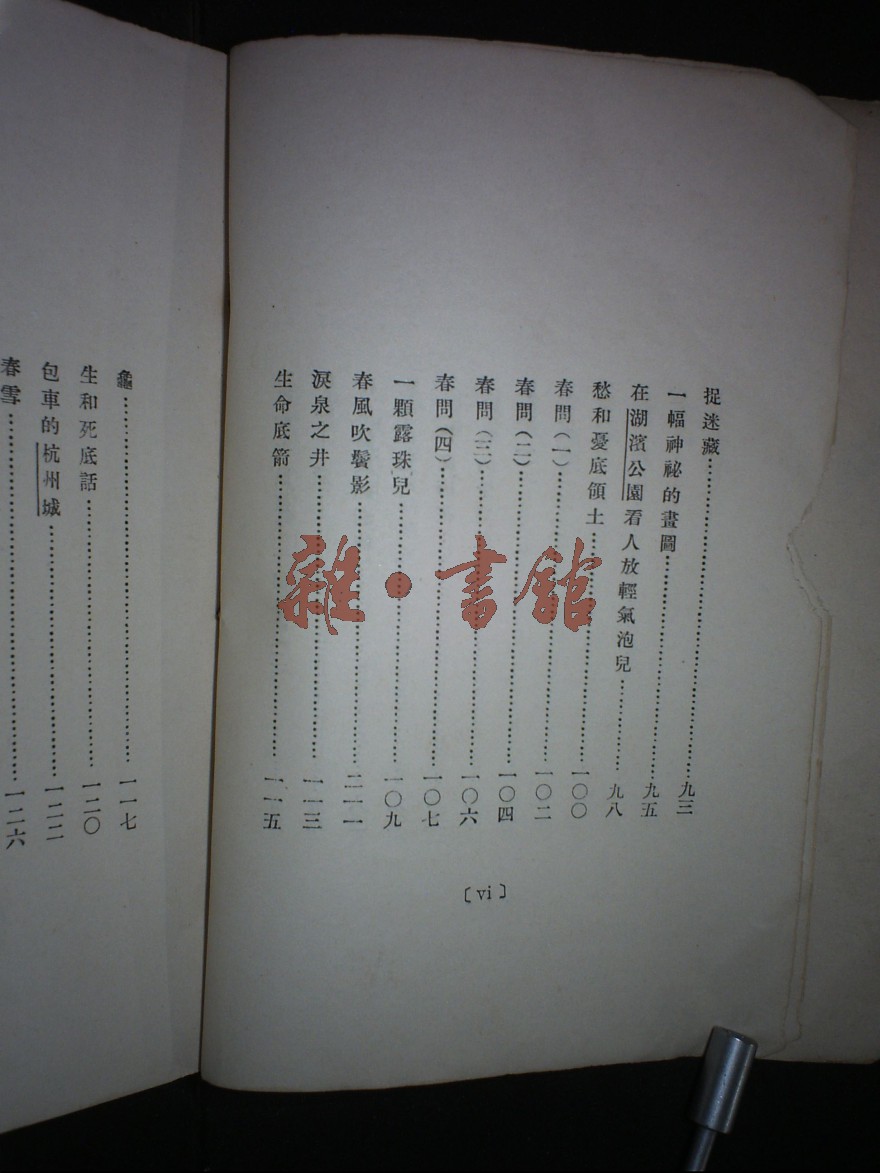 捉迷藏……九三
一幅神祕的畫圖……九五
在湖濱公園看人放輕氣泡兒……九八
愁和憂底領土……一〇〇
春問(一)……一〇二
春問(二)……一〇四
春問(三)……一〇六
春問(四)……一〇七
一顆露珠兒……一〇九
春風吹鬢影……二一一
淚泉之井……一一三
生命底箭……一一五
〔vi〕
龜……一一七
生和死底話……一二〇
包車的杭州城……一二二
春雪……一二六
雜·書館